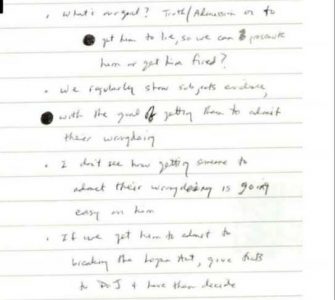 • What's our goal? Truth/Admission or to
get him to lie, so we can prosecute
him or get him fired?
• We regularly show subjects evidence,
with the goal of getting them to admit
their wrongdoing
• I don't see how getting someone to
admit their wrongdoing is going
easy on him
• If we get him to admit to
breaking the Logan Act, give facts
to DOJ + have them decide